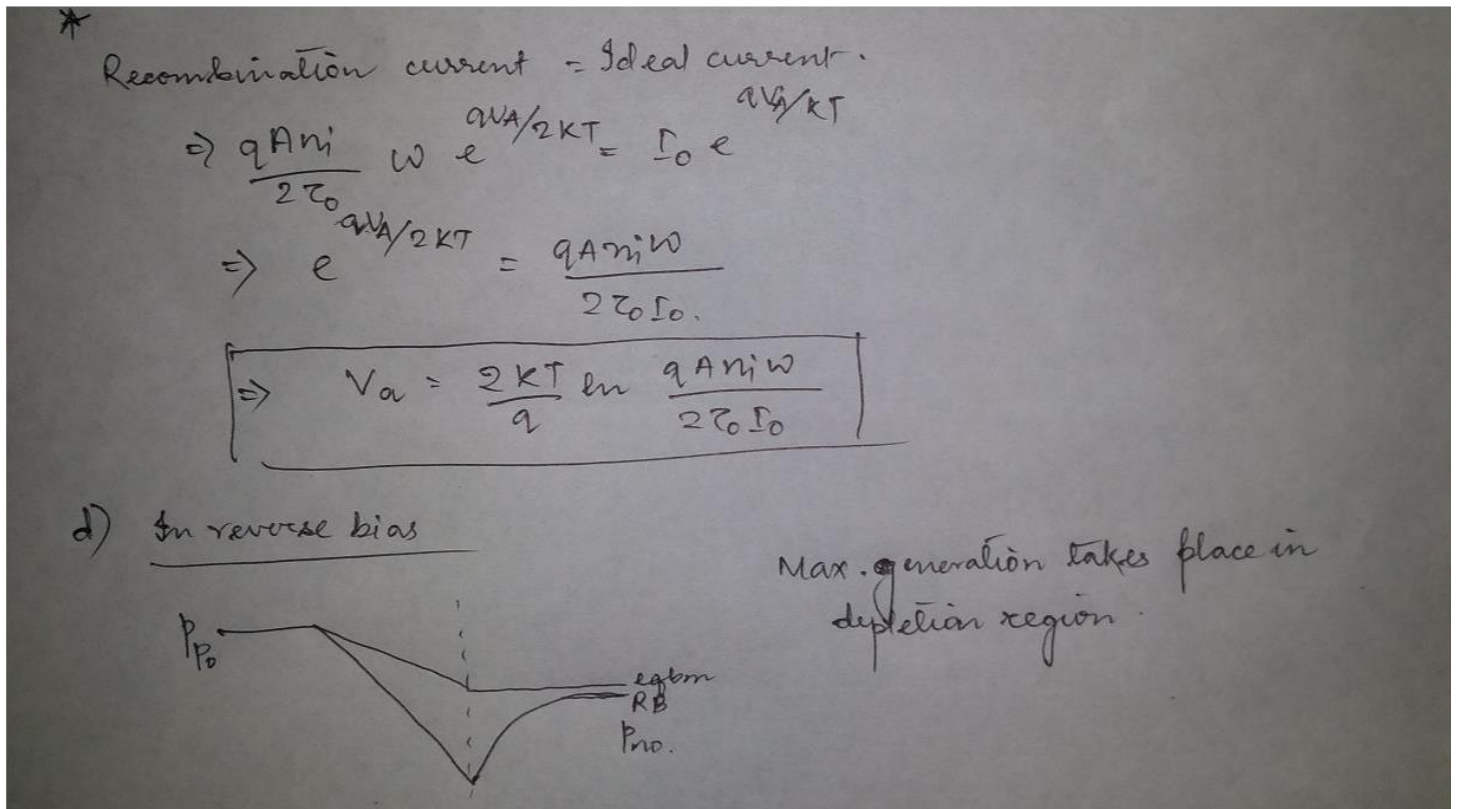 *
Recombination current = Ideal current.
⇒ qAni/2τ₀ W e^(qVA/2KT) = I₀ e^(qVA/KT)
⇒ e^(qVA/2KT) = qAniW/2τ₀I₀.
⇒ Va = 2KT/q ln qAniW/2τ₀I₀
d) In reverse bias
Max. generation takes place in
depletion region.
Pp₀
eqbm
RB
Pno.